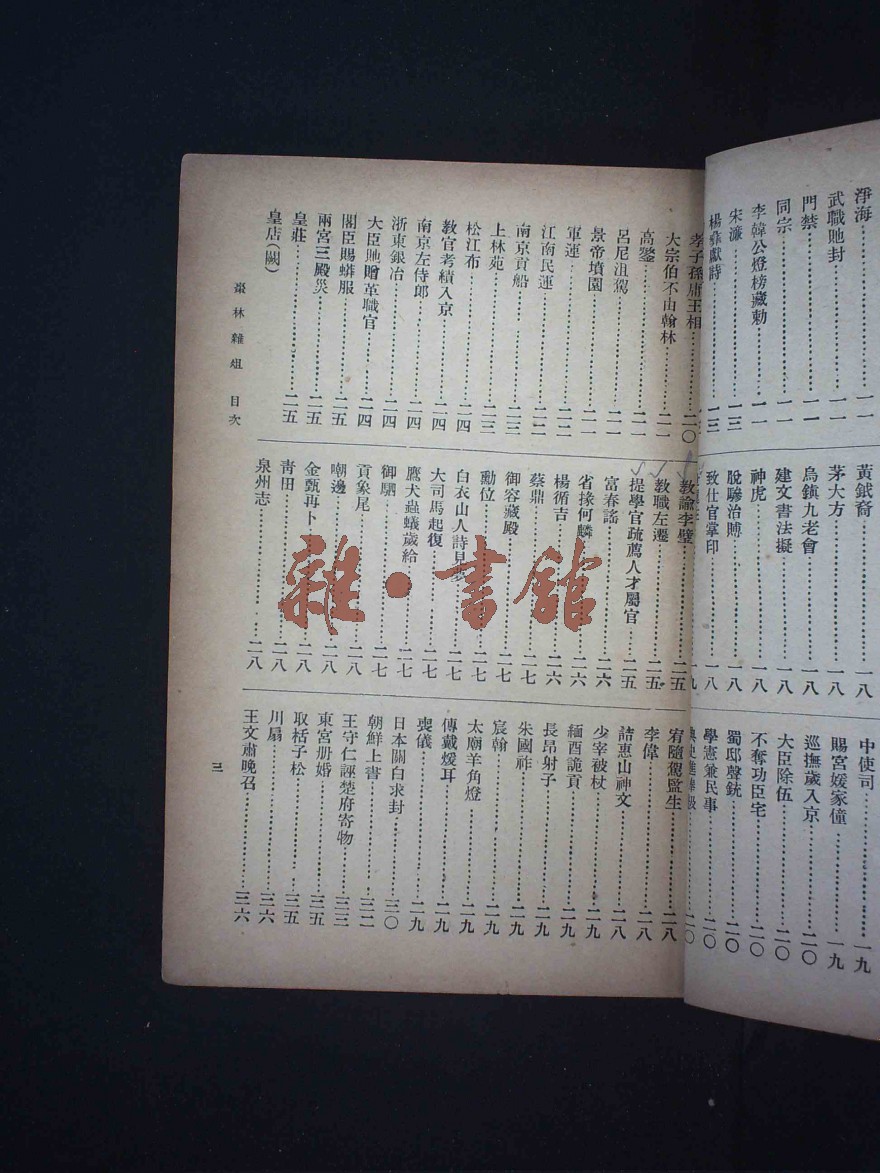 淨海……一一
武職貤封……一一
門禁……一一
同宗……一一
李韓公燈榜藏勅……一一
宋濂……一三
楊彝獻詩……一三
黃鉞裔……一八
茅大方……一八
烏鎮九老會……一八
建文書法擬……一八
神虎……一八
脫驂治賻……一八
致仕官掌印……一八
中使司……一九
賜宮媛家僮……一九
巡撫歲入京……二〇
大臣除伍……二〇
不奪功臣宅……二〇
蜀邸聲銃……二〇
學憲兼民事……二〇
孝子孫庸王相……二〇
大宗伯不由翰林……二一
高鑒……二一
呂尼沮駕……二一
景帝墳園……二一
軍運……二二
江南民運……二二
南京貢船……二三
上林苑……二三
松江布……二四
教官考績入京……二四
南京左侍郎……二四
浙東銀冶……二四
大臣貤贈革職官……二四
閣臣賜蟒服……二五
兩宮三殿災……二五
皇莊……二五
皇店(闕)
教諭李璧……二五
教職左遷……二五
提學官疏薦人才屬官……二五
富春謠……二六
省掾何麟……二六
楊循吉……二六
蔡鼎……二七
御容藏殿……二七
勳位……二七
白衣山人詩見……二七
大司馬起復……二七
鷹犬蟲蟻歲給……二七
御駟……二七
貢象尾……二八
嘲邊……二八
金甌再卜……二八
青田……二八
泉州志……二八
宥隨駕監生……二八
李偉……二八
詰惠山神文……二八
少宰被杖……二九
緬酉詭貢……二九
長昂射子……二九
朱國祚……二九
宸翰……二九
太廟羊角燈……二九
傳戴煖耳……二九
喪儀……二九
日本關白求封……三〇
朝鮮上書……三二
王守仁誣楚府寄物……三三
東宮册婚……三五
取栝子松……三五
川扇……三六
王文肅晚召……三六
棗林雜俎 目次
三
雜·書館